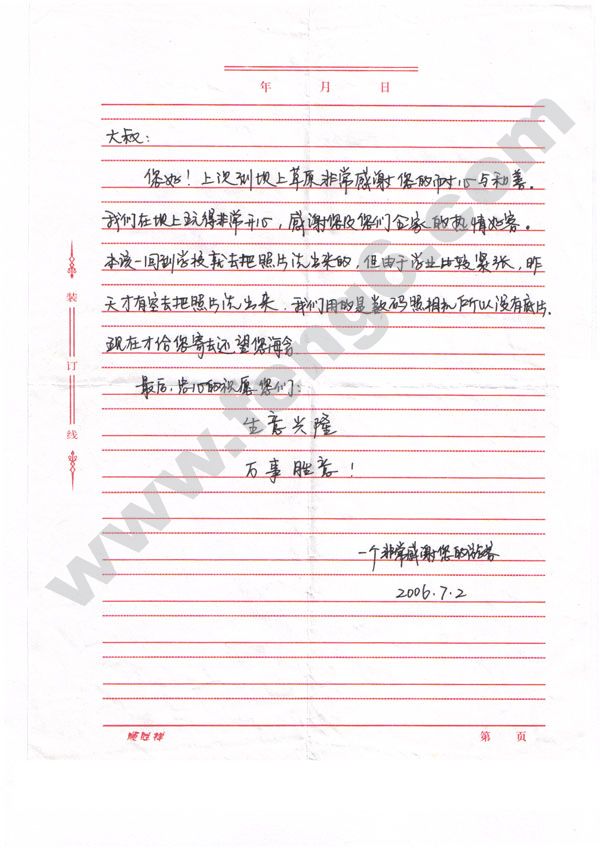 年 月 日
大叔：
您好！上次到坝上草原非常感谢您的耐心与和善。
我们在坝上玩得非常开心，感谢您及您们全家的热情好客。
本该一回到学校就去把照片洗出来的，但由于学业比较紧张，昨
天才有空去把照片洗出来，我们用的是数码照相机所以没有底片.
现在才给您寄去还望您海含
最后，忠心的祝愿您们：
生意兴隆
万事胜意！
一个非常感谢您的游客
2006.7.2
装
订
线
第 页
www.fengo6.com